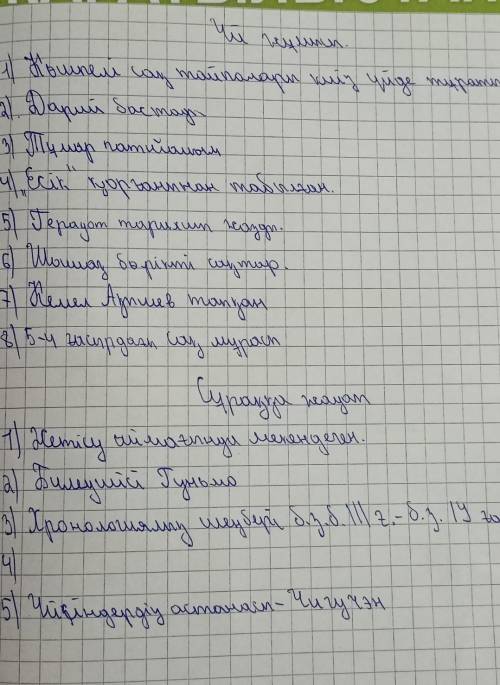 Үй жұмысы.
1) Көшпелі сақ тайпалары киіз үйде тұратын
2) Дарий бастады
3) Тұмар патшайым
4) "Есік" қорғанынан табылған.
5) Геродот тарихшы жазды.
6) Шошақ бөрікті сақтар.
7) Кемел Ақышев тапқан
8) 5-4 ғасырдағы сақ мұрасы
Сұраққа жауап
1) Жетісу аймағында мекендеген.
2) Билеушісі Гуньмо
3) Хронологиялық шеңбері б.з.б. III ғ. - б.з. IV ға
4)
5) Үйсіндердің астанасы - Чигучэн